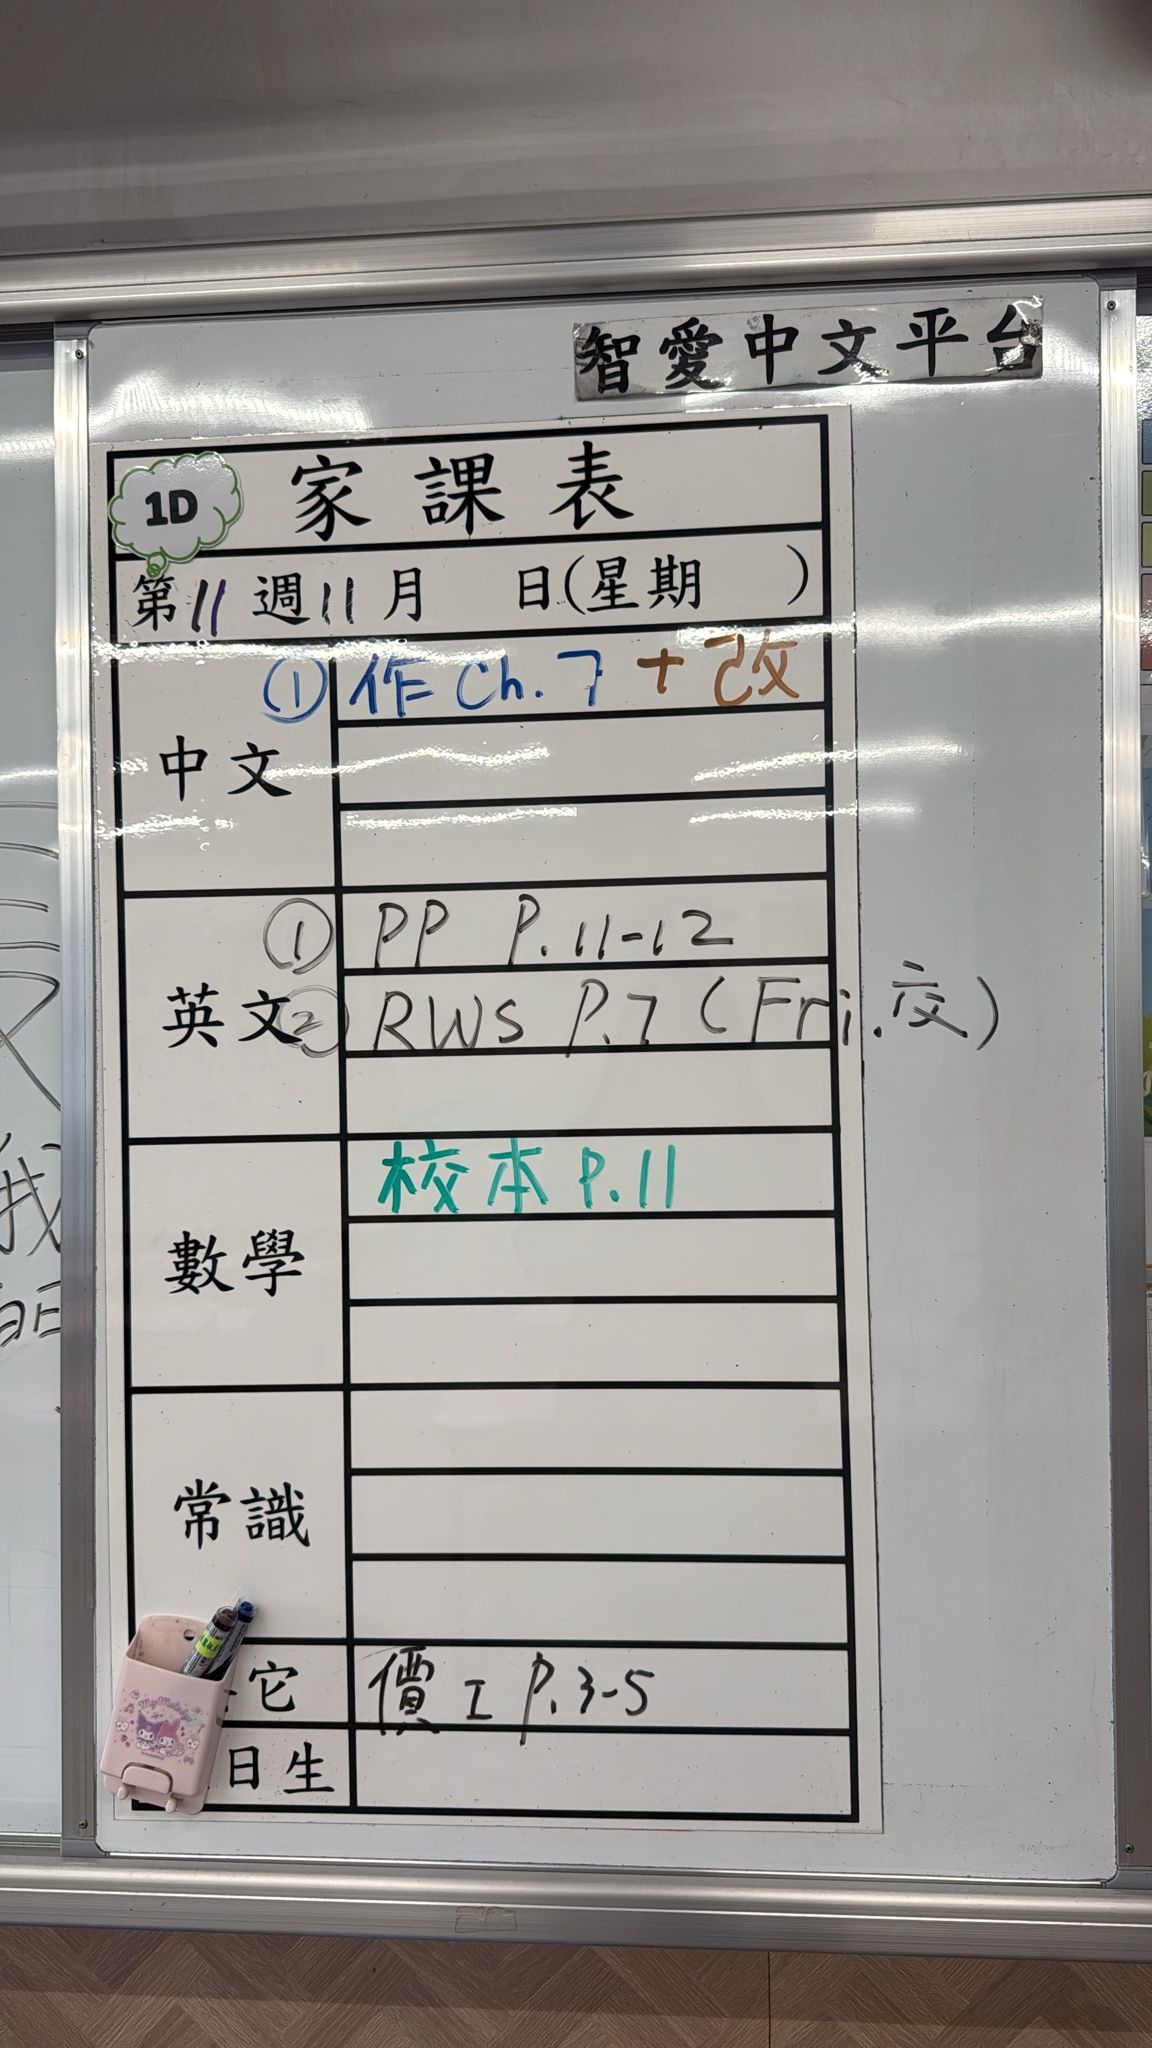 智愛中文平台
1D
家課表
第11週11月 日(星期 )
中文
① 作 Ch. 7 + 改
英文
① PP P.11-12
② RWS P.7 (Fri.交)
數學
校本 P.11
常識
它
價工 P.3-5
日生
My Melody
我